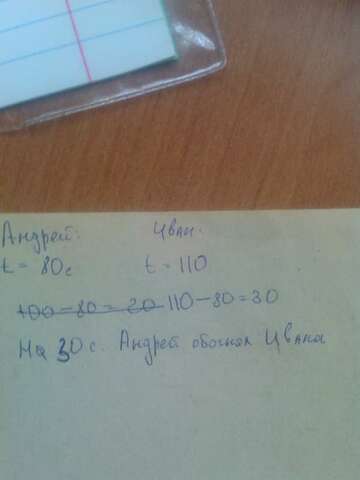 Андрей: Иван:
t = 80с t = 110
100-80=20 110-80=30
На 30 с. Андрей обогнал Ивана